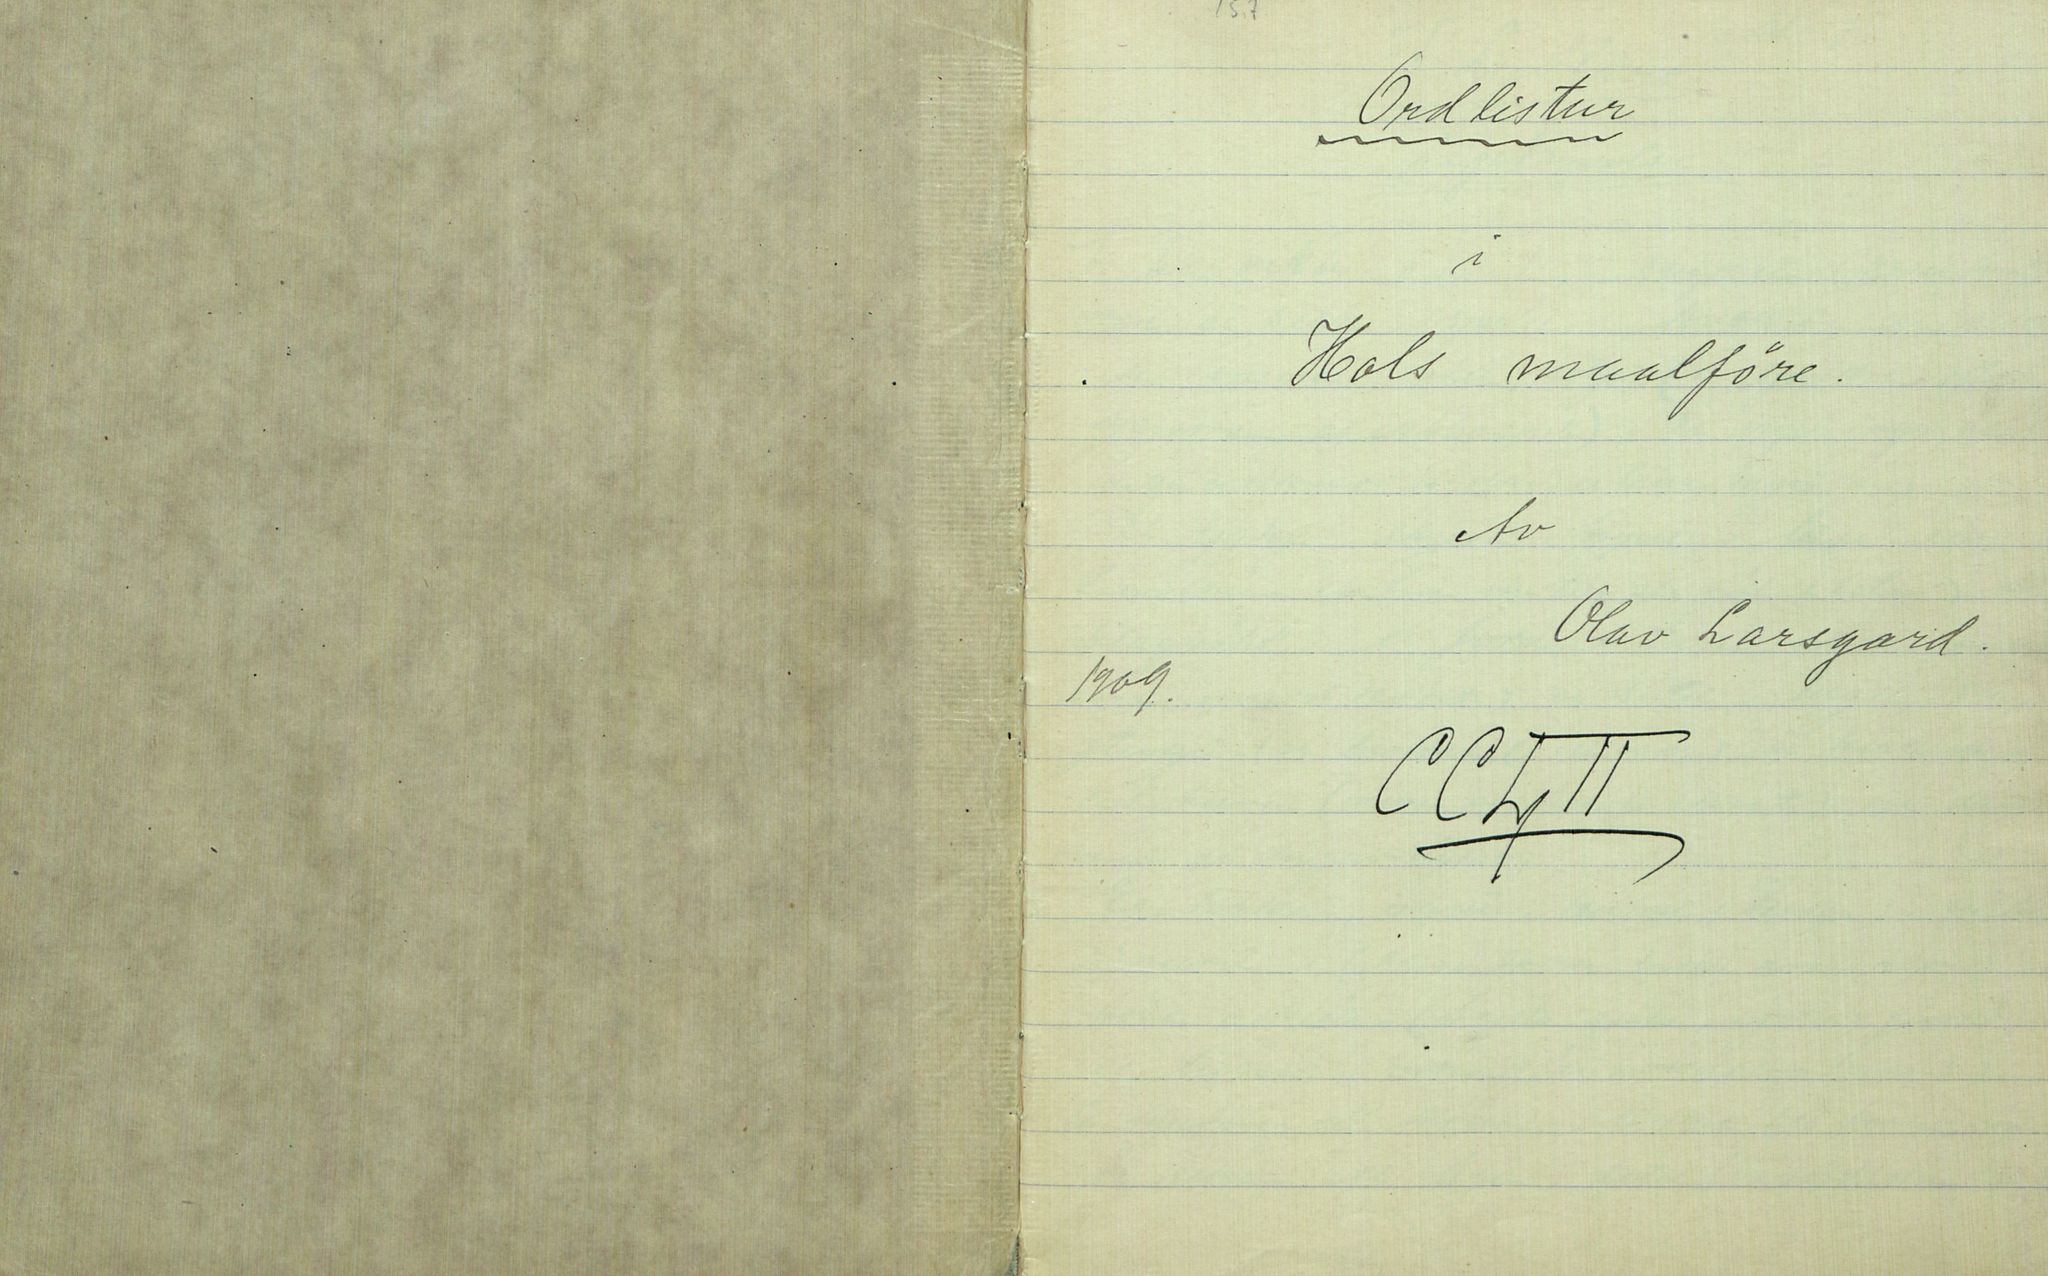 157
Ordlistur
i
Hols maalföre.
Av
Olav Larsgard.
1909.